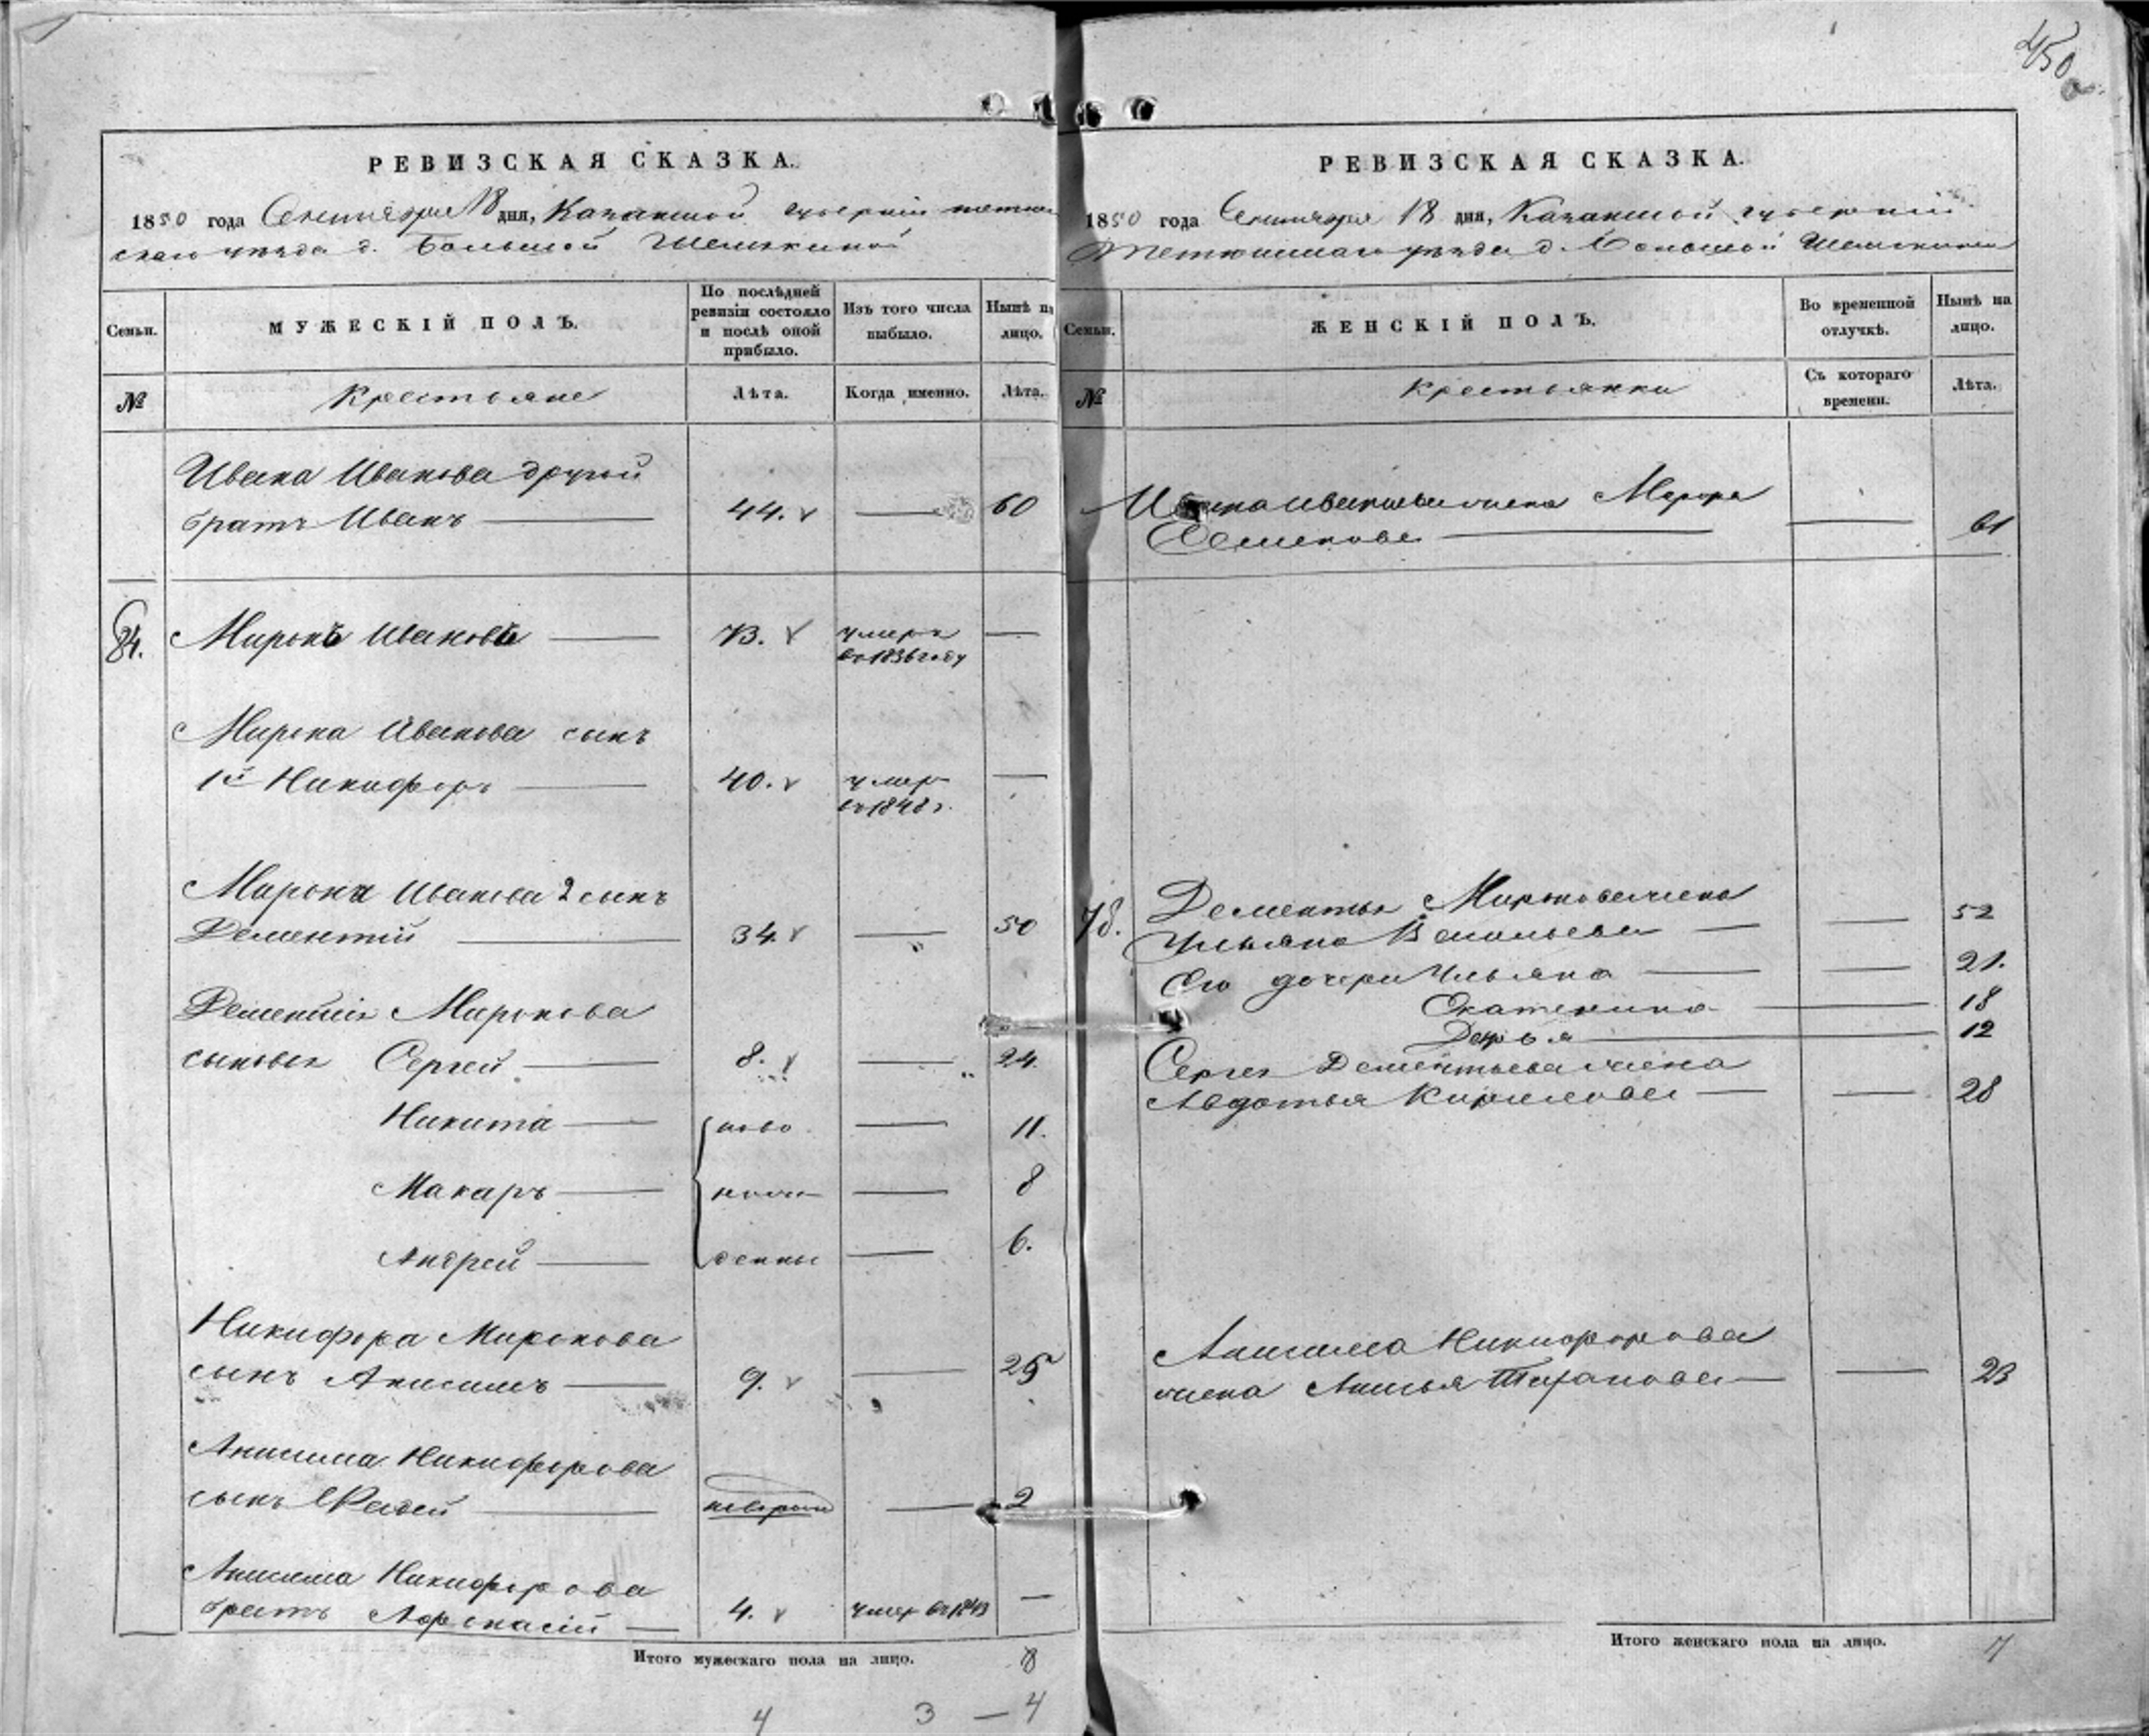 450
РЕВИЗСКАЯ СКАЗКА.
1850 года Сентября 18 дня, Казанской губернiи тетю
скаго уѣзда д. Большой Шемякиной
Семьи.
МУЖЕСКIЙ ПОЛЪ.
По послѣдней
ревизiи состояло
и послѣ оной
прибыло.
Изъ того числа
выбыло.
Нынѣ на
лицо.
№
Крестьяне
Лѣта.
Когда именно.
Лѣта.
Ивана Иванова другой
братъ Иванъ 44. 60
84. Миронъ Ивановъ 73. умеръ
въ 1836 году
Мирона Иванова сынъ
1й Никифоръ 40. умер
въ 1848 г.
Мирона Иванова 2 сынъ
Дементiй 34. 50
Дементiя Миронова
сыновья Сергей 8. 24.
Никита ново 11.
Макаръ рож 8
Андрей денны 6.
Никифора Миронова
сынъ Анисимъ 9. 25
Анисима Никифорова
сынъ Фадей новорож 2
Анисима Никифорова
братъ Афонасiй 4. умер въ 1843
Итого мужескаго пола на лицо. 8
4 3 — 4
РЕВИЗСКАЯ СКАЗКА.
1850 года Сентября 18 дня, Казанской губернiи
Тетюшскаго уѣзда д. Большой Шемякиной
Семьи.
ЖЕНСКIЙ ПОЛЪ.
Во временной
отлучкѣ.
Нынѣ на
лицо.
№
Крестьянки
Съ котораго
времени.
Лѣта.
Ивана Иванова жена Марфа
Семенова 61
78. Дементья Миронова жена
Ульяна Васильева 52
Его дочери Ульяна 21.
Екатерина 18
Дарья 12
Сергея Дементьева жена
Авдотья Кирилова 28
Анисима Никифорова
жена Анисья 23
Итого женскаго пола на лицо. 7